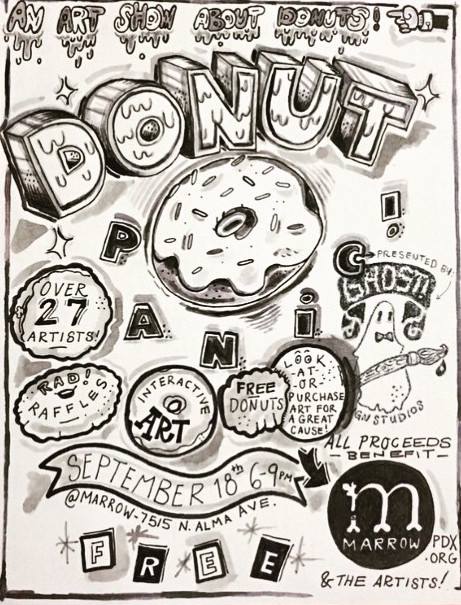 AN ART SHOW ABOUT DONUTS!
DONUT
PANIC!
PRESENTED BY:
GHOST!
OVER
27
ARTISTS!
RAD!
RAFFLES
INTERACTIVE
ART
FREE
DONUTS
LOOK
-AT-
-OR-
PURCHASE
ART FOR
A GREAT
CAUSE!
GN STUDIOS
ALL PROCEEDS
-BENEFIT-
SEPTEMBER 18th 6-9PM
@MARROW-7515 N. ALMA AVE.
m
MARROW
PDX
.ORG
FREE
& THE ARTISTS!